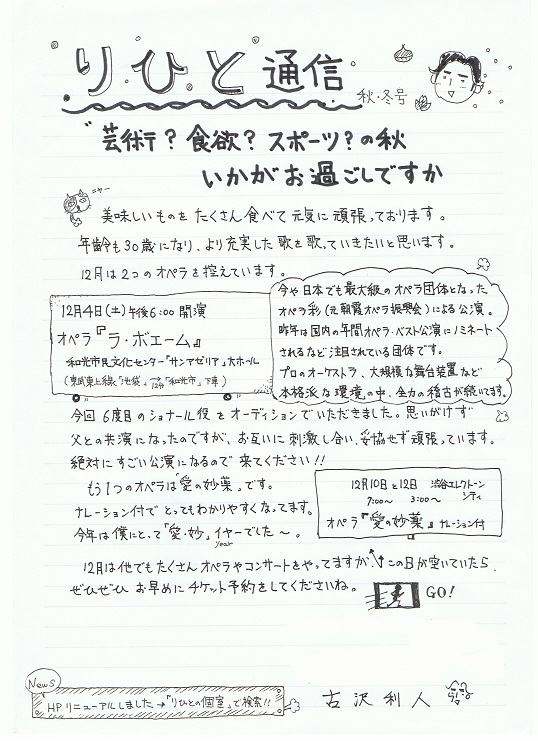 りひと通信
秋・冬号
"芸術？食欲？スポーツ？の秋
いかがお過ごしですか
ニャー
美味しいものをたくさん食べて元気に頑張っております。
年齢も30歳になり、より充実した歌を歌っていきたいと思います。
12月は2つのオペラを控えています。
12月4日(土)午後6:00開演
オペラ『ラ・ボエーム』
和光市民文化センター「サンアゼリア」大ホール
(東武東上線「池袋」→12分「和光市」下車)
今や日本でも最大級のオペラ団体となった
オペラ彩(元朝霞オペラ振興会)による公演。
昨年は国内の年間オペラ・ベスト公演にノミネート
されるなど注目されている団体です。
プロのオーケストラ、大規模な舞台装置など
本格派な環境の中、全力の稽古が続いてます。
今回6度目のショナール役をオーディションでいただきました。思いがけず
父との共演になったのですが、お互いに刺激し合い、妥協せず頑張っています。
絶対にすごい公演になるので来てください!!
もう1つのオペラは「愛の妙薬」です。
ナレーション付でとってもわかりやすくなってます。
今年は僕にとって「愛・妙」イヤーでした〜。
year
12月10日と12日 渋谷エレクトーン
7:00〜 3:00〜 シティ
オペラ『愛の妙薬』ナレーション付
12月は他でもたくさんオペラやコンサートをやってますが、この日が空いていたら、
ぜひぜひお早めにチケット予約をしてくださいね。
GO!
News
HPリニューアルしました→『りひとの個室』で検索!!
古沢利人